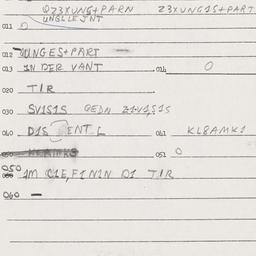 QZ3XUNG+PARN Z3XUNG1S+PART
UNGLLEJNT
011 O
012 UNGES+PART —
013 IN DER VANT 014 O
020 TIR
030 SV1S1S GEDN
040 D1S ENT L 041 KL8AMK1
051 O
050 IM C1E,F1N1N D1 TIR
060 —